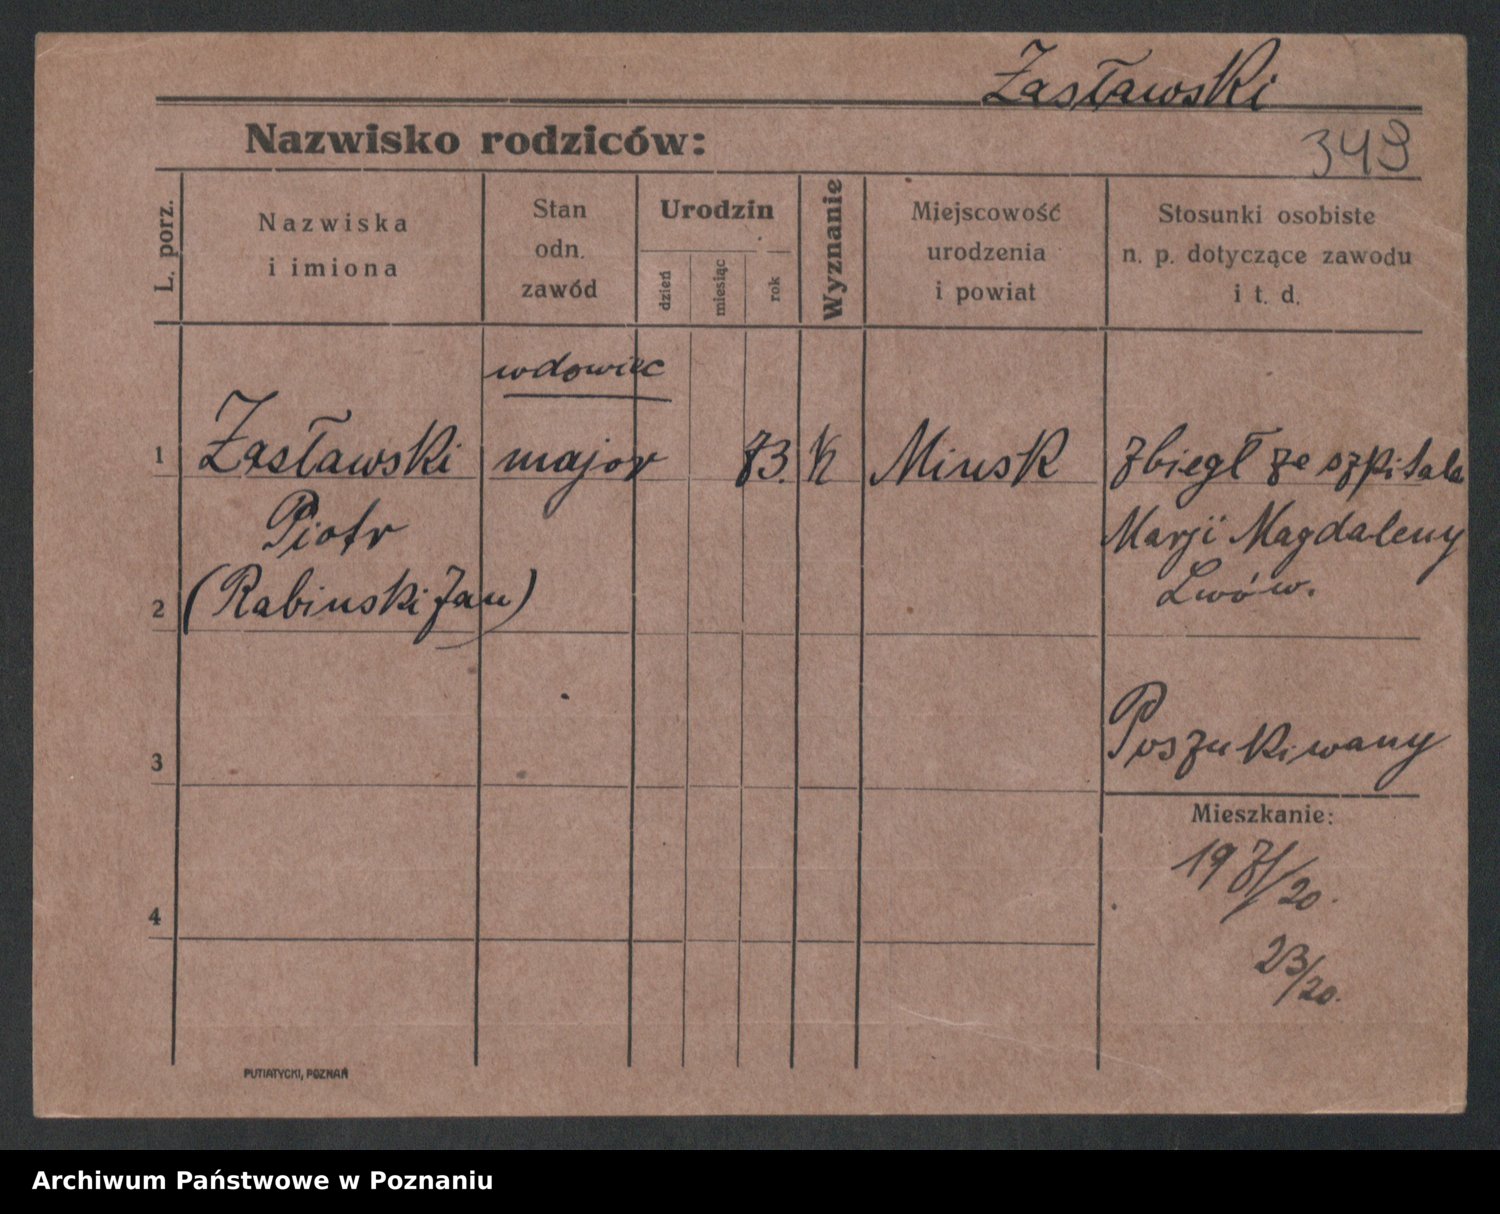 Zasławski
Nazwisko rodziców:
349
L. porz.
Nazwiska
i imiona
Stan
odn.
zawód
Urodzin
dzień
miesiąc
rok
Wyznanie
Miejscowość
urodzenia
i powiat
Stosunki osobiste
n. p. dotyczące zawodu
i t. d.
wdowiec
1 Zasławski major 73. k Minsk zbiegł ze szpitala
Piotr Marji Magdaleny
2 (Rabinski Jan) Lwów.
3 Poszukiwany
Mieszkanie:
4
23/20.
PUTIATYCKI, POZNAŃ
Archiwum Państwowe w Poznaniu